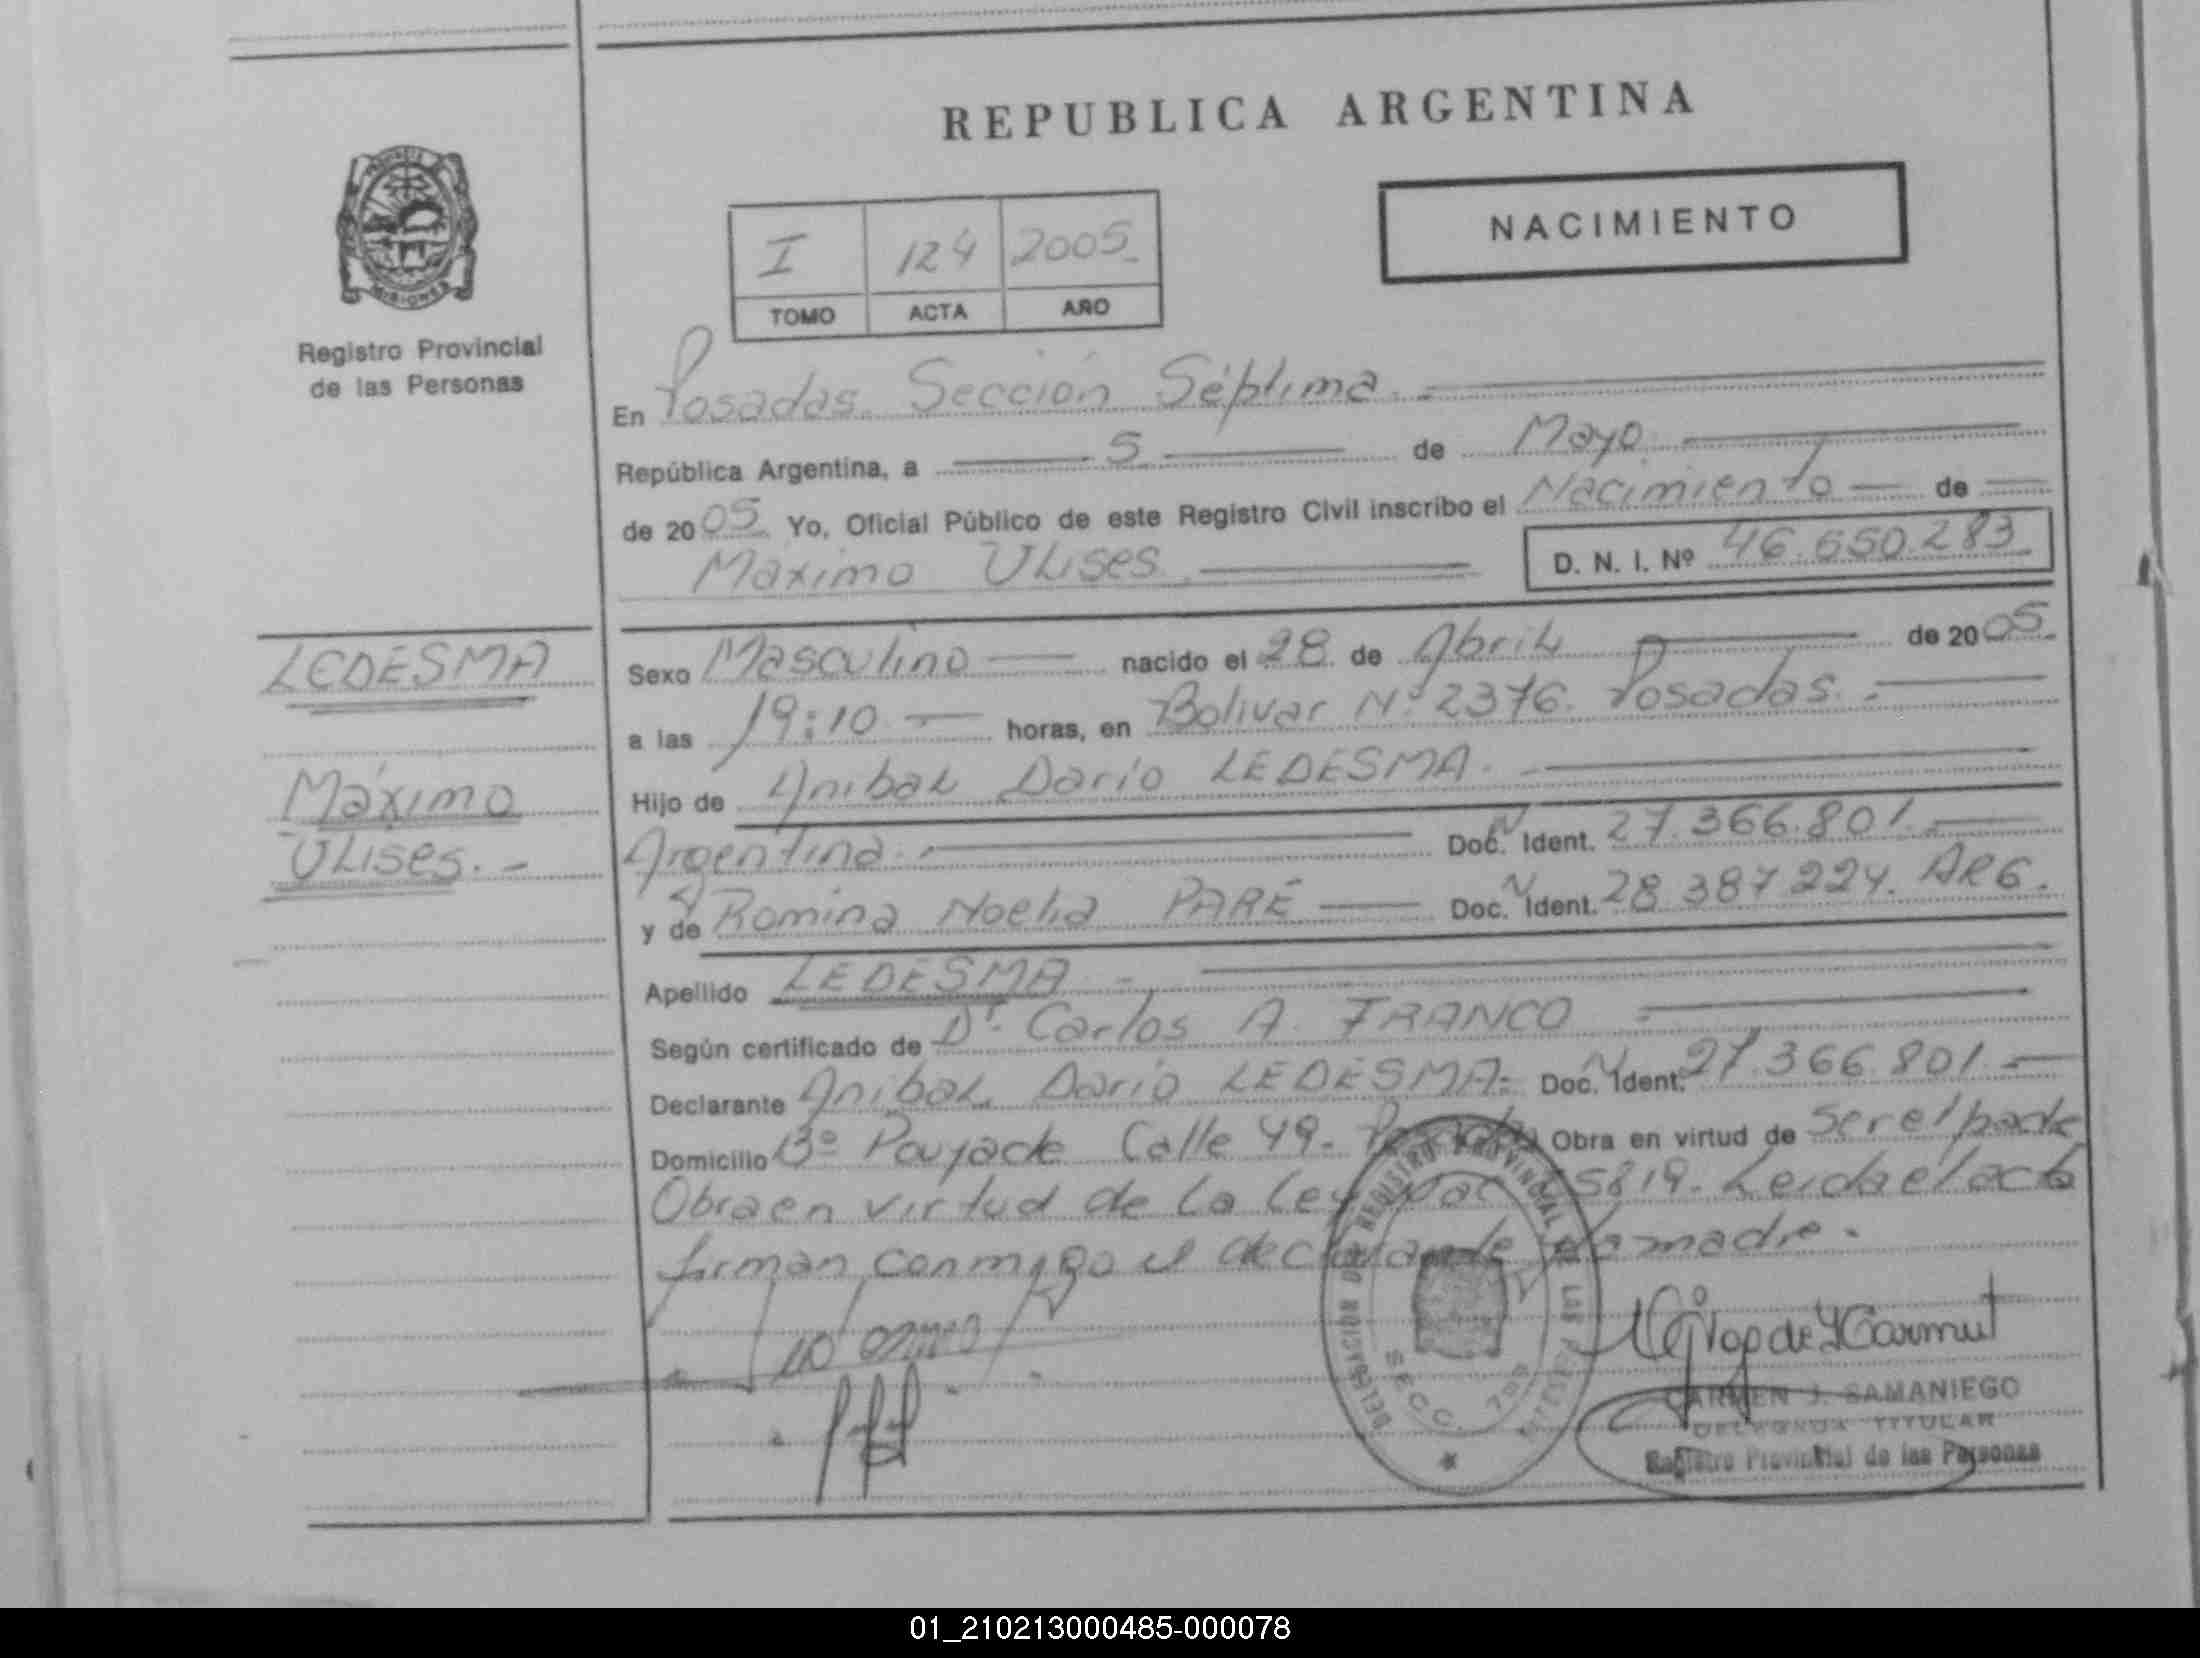 REPUBLICA ARGENTINA
NACIMIENTO
I 124 2005
TOMO ACTA AÑO
PROVINCIA
MISIONES
Registro Provincial
de las Personas
En Posadas Sección Séptima.
República Argentina, a 5 de Mayo
de 2005 Yo, Oficial Público de este Registro Civil inscribo el Nacimiento de
Máximo Ulises
D. N. I. Nº 46.650.283
LEDESMA
Máximo
Ulises.-
Sexo Masculino nacido el 28 de Abril de 2005
a las 19:10 horas, en Bolivar Nº 2376. Posadas.
Hijo de Anibal Dario LEDESMA.
Argentina. Doc. N Ident. 27.366.801.
y de Romina Noelia PARÉ Doc. N Ident. 28.387.224. ARG.
Apellido LEDESMA
Según certificado de Dr. Carlos A. FRANCO
Declarante Anibal Dario LEDESMA. Doc. N Ident. 27.366.801.
Domicilio Bº Pouyade Calle 49- Obra en virtud de ser el padre
Obra en virtud de la Ley 15819. Leida el acta
firman conmigo el declarante y la madre.
DELEGACION DEL REGISTRO PROVINCIAL DE LAS PERSONAS
SECC. 7
CARMEN J. SAMANIEGO
DELEGADA TITULAR
Registro Provincial de las Personas
01_210213000485-000078